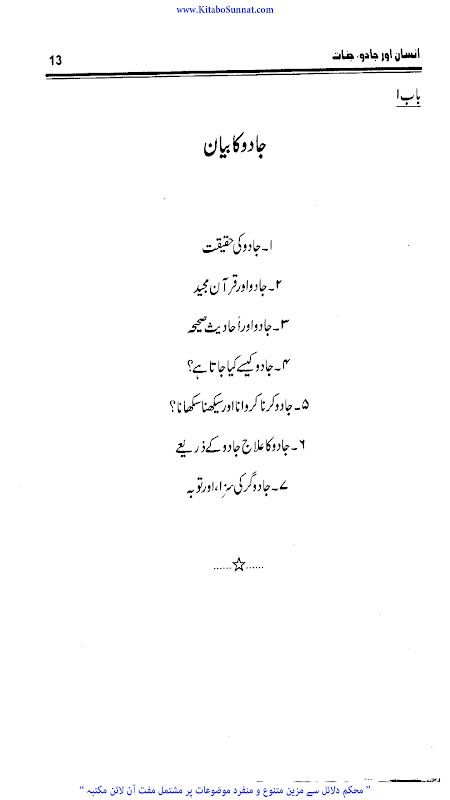 www.KitaboSunnat.com
انسان اور جادو، جنات 13
باب ۱
جادو کا بیان
۱۔ جادو کی حقیقت
۲۔ جادو اور قرآن مجید
۳۔ جادو اور أحادیث صحیحہ
۴۔ جادو کیسے کیا جاتا ہے؟
۵۔ جادو کرنا کروانا اور سیکھنا سکھانا؟
۶۔ جادو کا علاج جادو کے ذریعے
۷۔ جادوگر کی سزاء، اور توبہ
......☆......
" محکم دلائل سے مزین متنوع و منفرد موضوعات پر مشتمل مفت آن لائن مکتبہ "